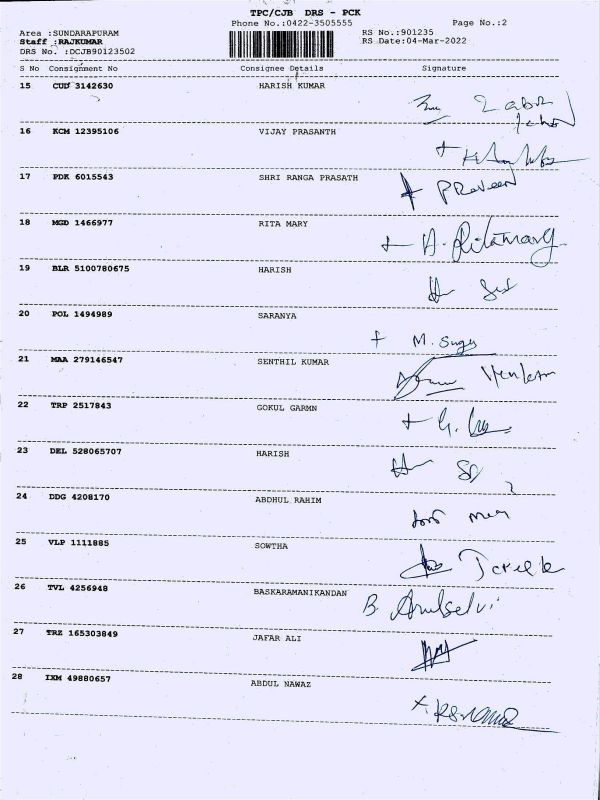 TPC/CJB DRS - PCK
Phone No.:0422-3505555 Page No.:2
Area :SUNDARAPURAM RS No.:901235
Staff :RAJKUMAR RS Date:04-Mar-2022
DRS No. :DCJB90123502
S No Consignment No Consignee Details Signature
15 CUD 3142630 HARISH KUMAR
16 KCM 12395106 VIJAY PRASANTH
17 PDK 6015543 SHRI RANGA PRASATH
PRaveen
18 MGD 1466977 RITA MARY
A. Ritamary
19 BLR 5100780675 HARISH
20 POL 1494989 SARANYA
M. Sugu
21 MAA 279146547 SENTHIL KUMAR
22 TRP 2517843 GOKUL GARMN
23 DEL 528065707 HARISH
24 DDG 4208170 ABDHUL RAHIM
25 VLP 1111885 SOWTHA
26 TVL 4256948 BASKARAMANIKANDAN
B. Arulselvi
27 TRZ 165303849 JAFAR ALI
28 IXM 49880657 ABDUL NAWAZ